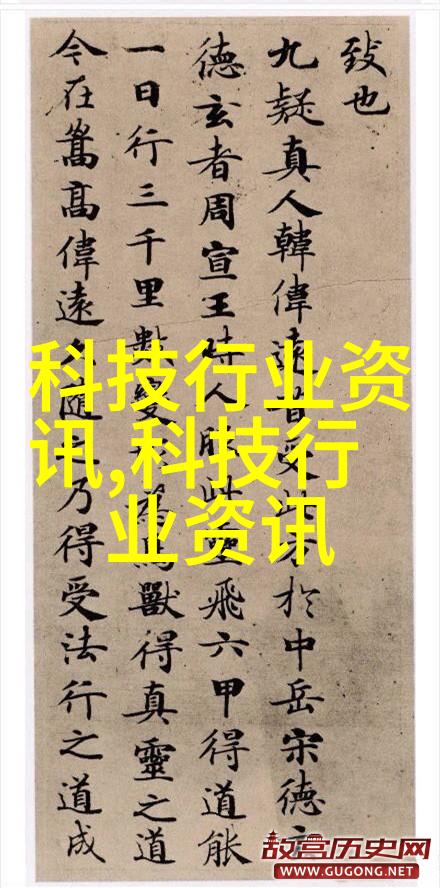 致也
九疑真人韓偉遠昔受此於中岳宋德玄
德玄者周宣王時人服此靈飛六甲得道能
一日行三千里數變為鳥獸得真靈之道
今在嵩高偉遠久隨之乃得受法行之道成
科技行业资
讯,科技行
业资讯
故宫历史网
WWW.GUGONG.NET